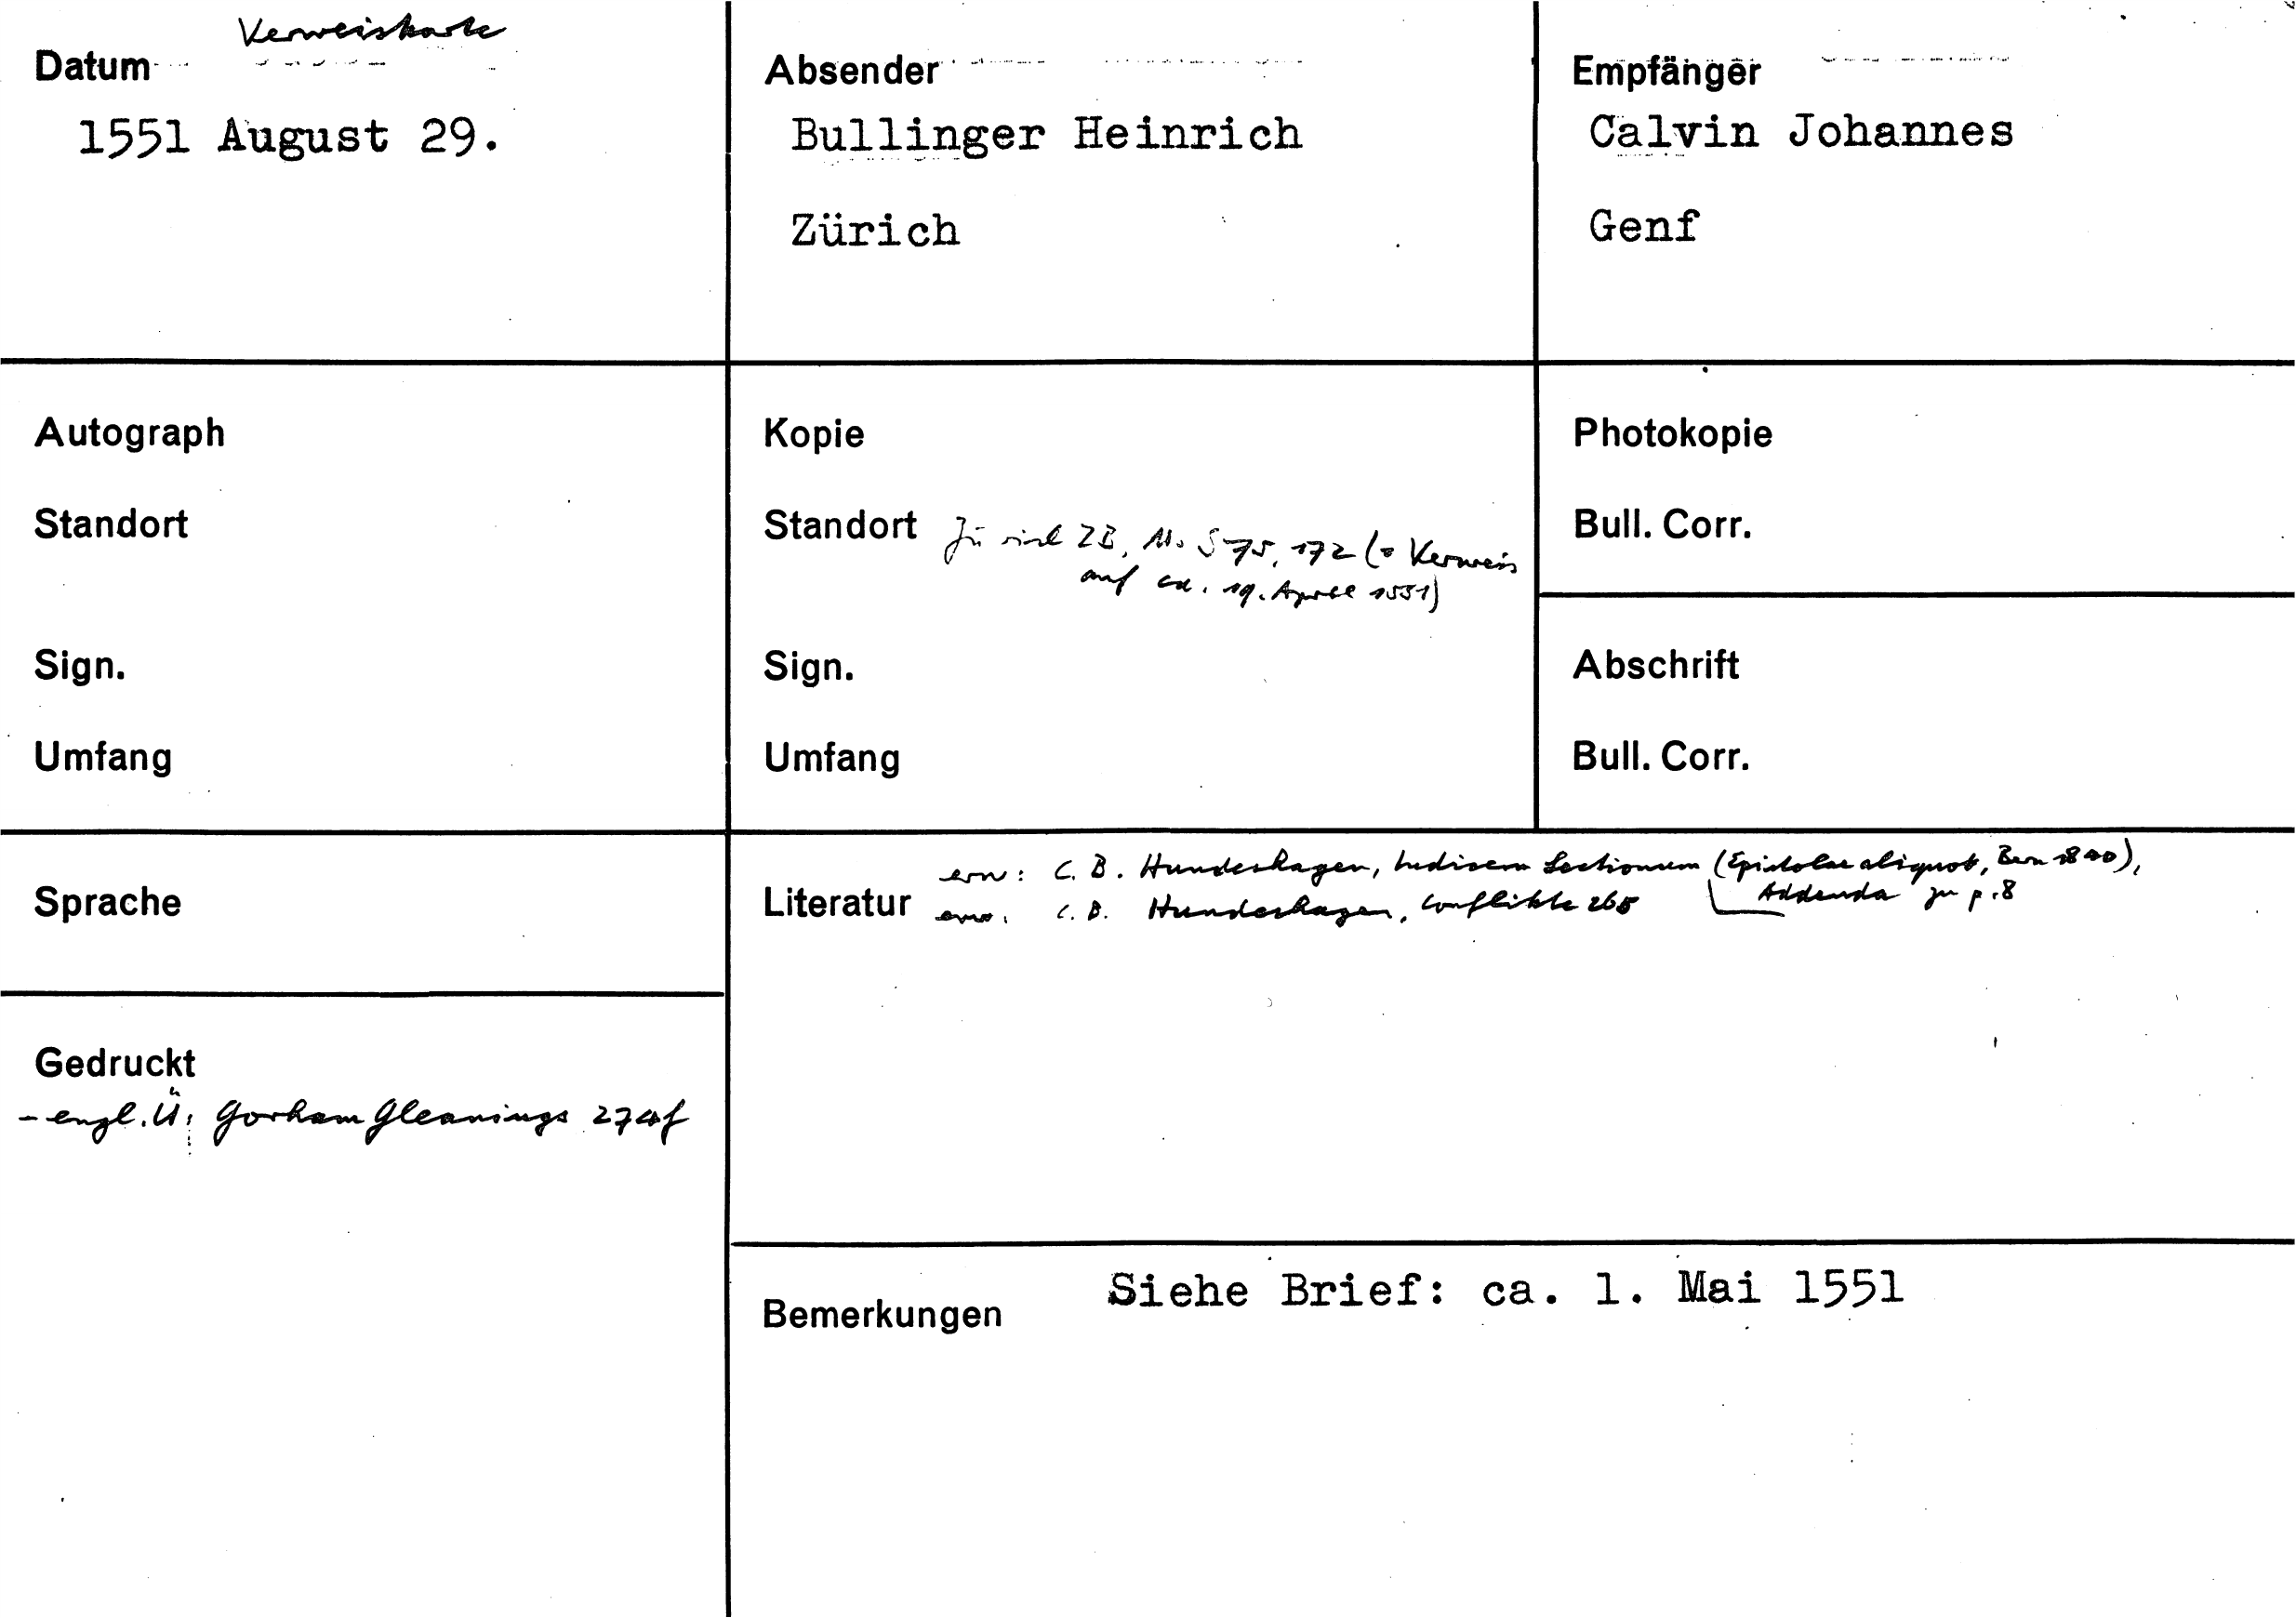 Verweiskarte
Datum
1551 August 29.
Absender
Bullinger Heinrich
Zürich
Empfänger
Calvin Johannes
Genf
Autograph
Standort
Sign.
Umfang
Kopie
Standort Zü ZB, Ms S 75, 172 (= Verweis
auf ca. 19. April 1551)
Sign.
Umfang
Photokopie
Bull. Corr.
Abschrift
Bull. Corr.
Sprache
Literatur
erw: C. B. Hundeshagen, Indicem Lectionum (Epistolae aliquot, Bern 1840),
Addenda zu p. 8
erw. C. B. Hundeshagen, Conflikte 265
Gedruckt
- engl. Ü: Gorham Gleanings 274f
Bemerkungen
Siehe Brief: ca. 1. Mai 1551